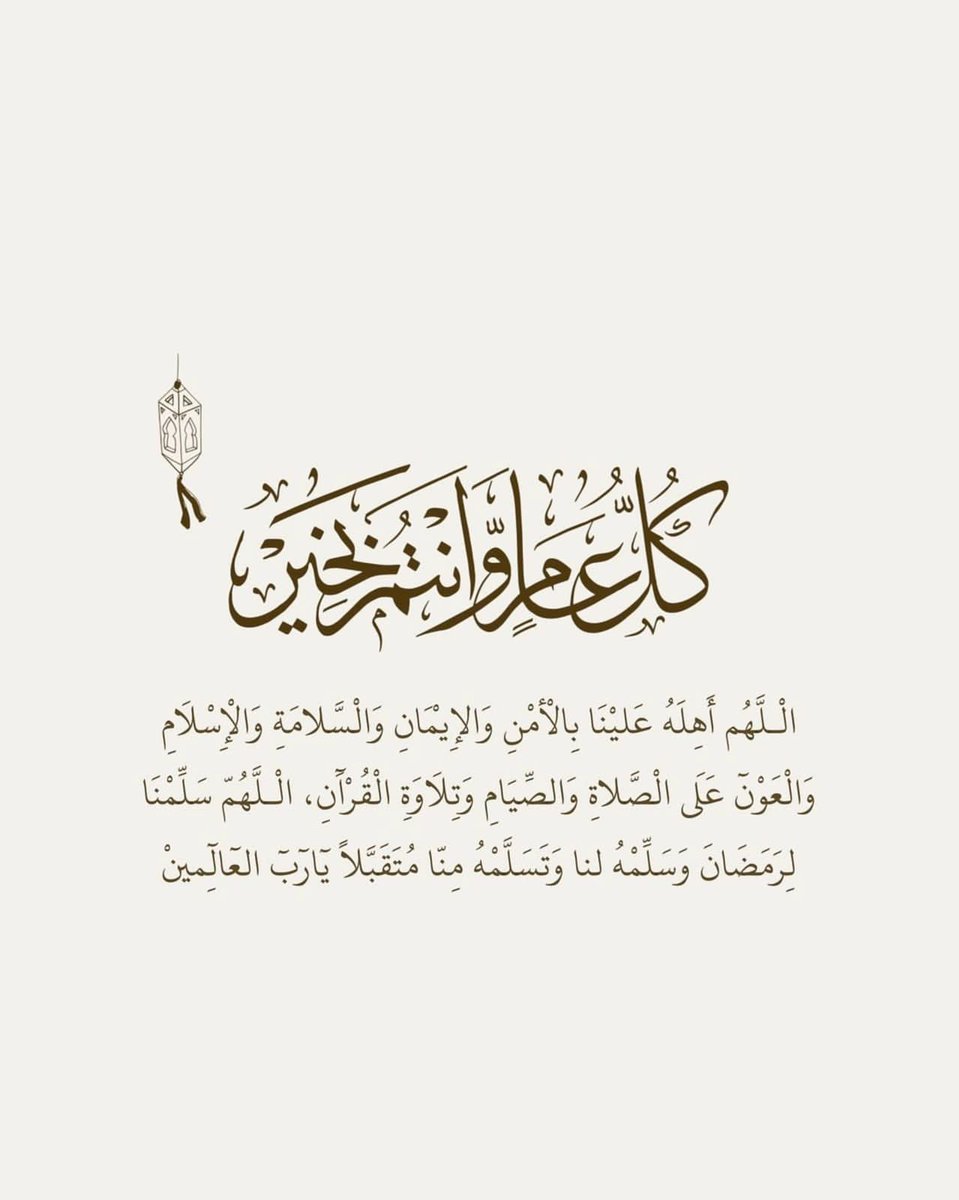 كُلُّ عَامٍ وَّأَنْتُمْ بِخَيْرٍ
الْـلَّهُم أَهِلَهُ عَليْنَا بِالْأمْنِ وَالإِيْمَانِ وَالْسَّلامَةِ وَالْإِسْلَامِ
وَالْعَوْنَ عَلَى الْصَّلاةِ وَالصِّيَامِ وَتِلَاوَةِ الْقُرْآنِ، الْـلَّهُمّ سَلِّمْنَا
لِرَمَضَانَ وَسَلِّمْهُ لنا وَتَسَلَّمْهُ مِنّا مُتَقَبَّلاً يَارَبَ العَالَمِينْ